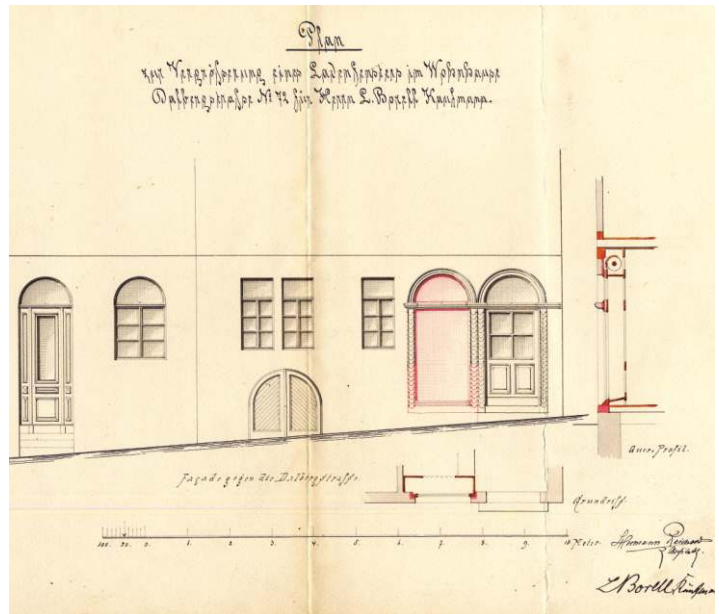 Plan
zur Vergrößerung eines Ladenfensters im Wohnhause
Dalbergstraße № 72 für Herrn L. Borell Kaufmann.
Quer-Profil.
Façade gegen die Dalbergstraße.
Grundriß.
100. 50. 0. 1. 2. 3. 4. 5. 6. 7. 8. 9. 10 Meter.
Hermann
L Borell Kaufmann